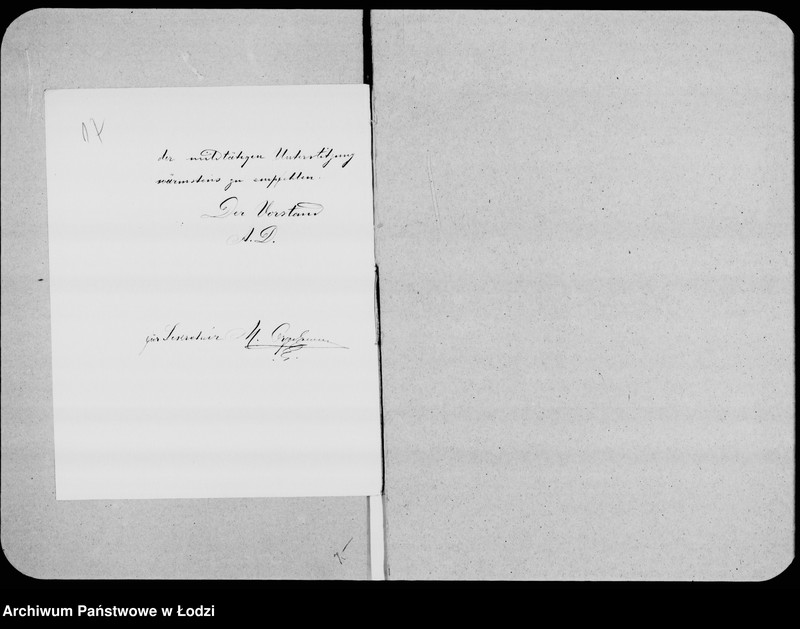 der mildtätigen Unterstützung
wärmstens zu empfehlen.
Der Vorstand
A. D.
für Secretair M.
Archiwum Państwowe w Łodzi